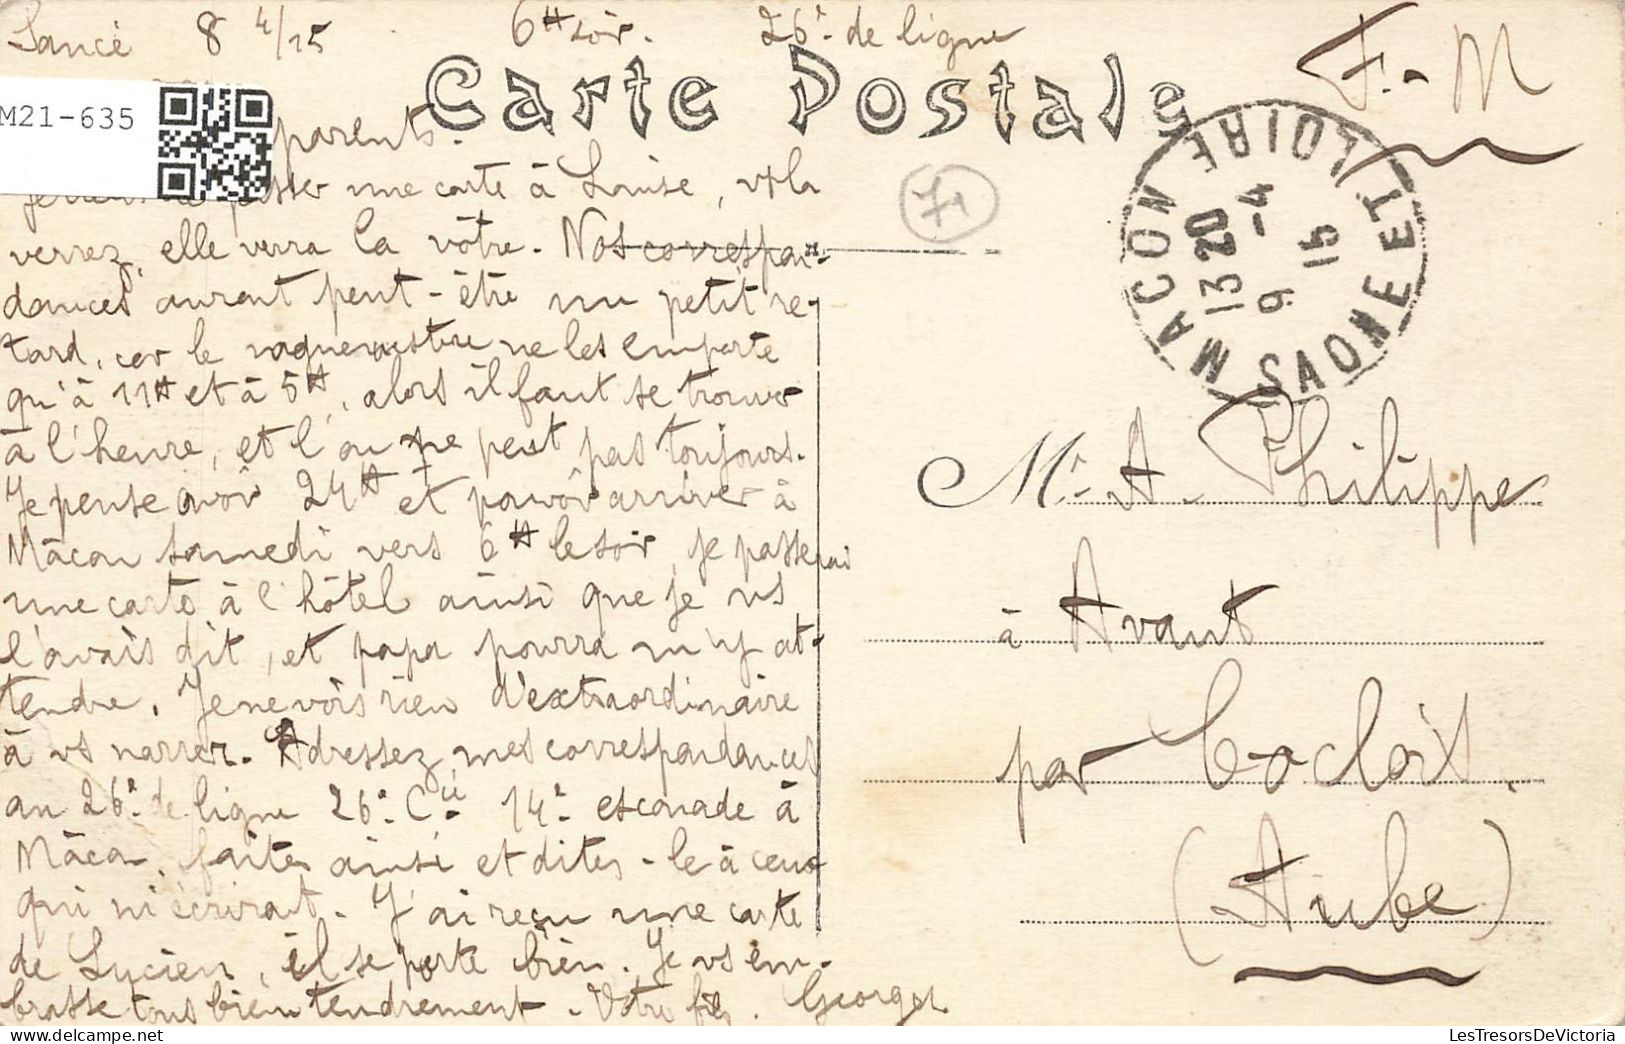 Sancé 8 4/15 6H soir. 26e de ligne
F.-M
Carte Postale
M21-635
parents.
passer une carte à Louise, vs la
verrez, elle verra la vôtre. Nos correspon-
dances auront peut-être un petit re-
tard, car le vaguemestre ne les emporte
qu'à 11H et à 5H, alors il faut se trouver
à l'heure, et l'on ne peut pas toujours.
Je pense avoir 24H et pouvoir arriver à
Mâcon samedi vers 6H le soir, je passerai
une carte à l'hôtel ainsi que je vs
l'avais dit, et papa pourra m'y at-
tendre. Je ne vois rien d'extraordinaire
à vs narrer. Adressez mes correspondances
au 26e de ligne 26e Cie 14e escouade à
Mâcon, faites ainsi et dites-le à ceux
qui m'écriront. J'ai reçu une carte
de Lucien, il se porte bien. Je vs em-
brasse tous bien tendrement. Votre fils. Georges
71
MACON SAONE ET LOIRE
13 20
9 -4
15
Mr. A. Philippe
à Avant
par Coclois.
(Aube)
LesTresorsDeVictoria.com